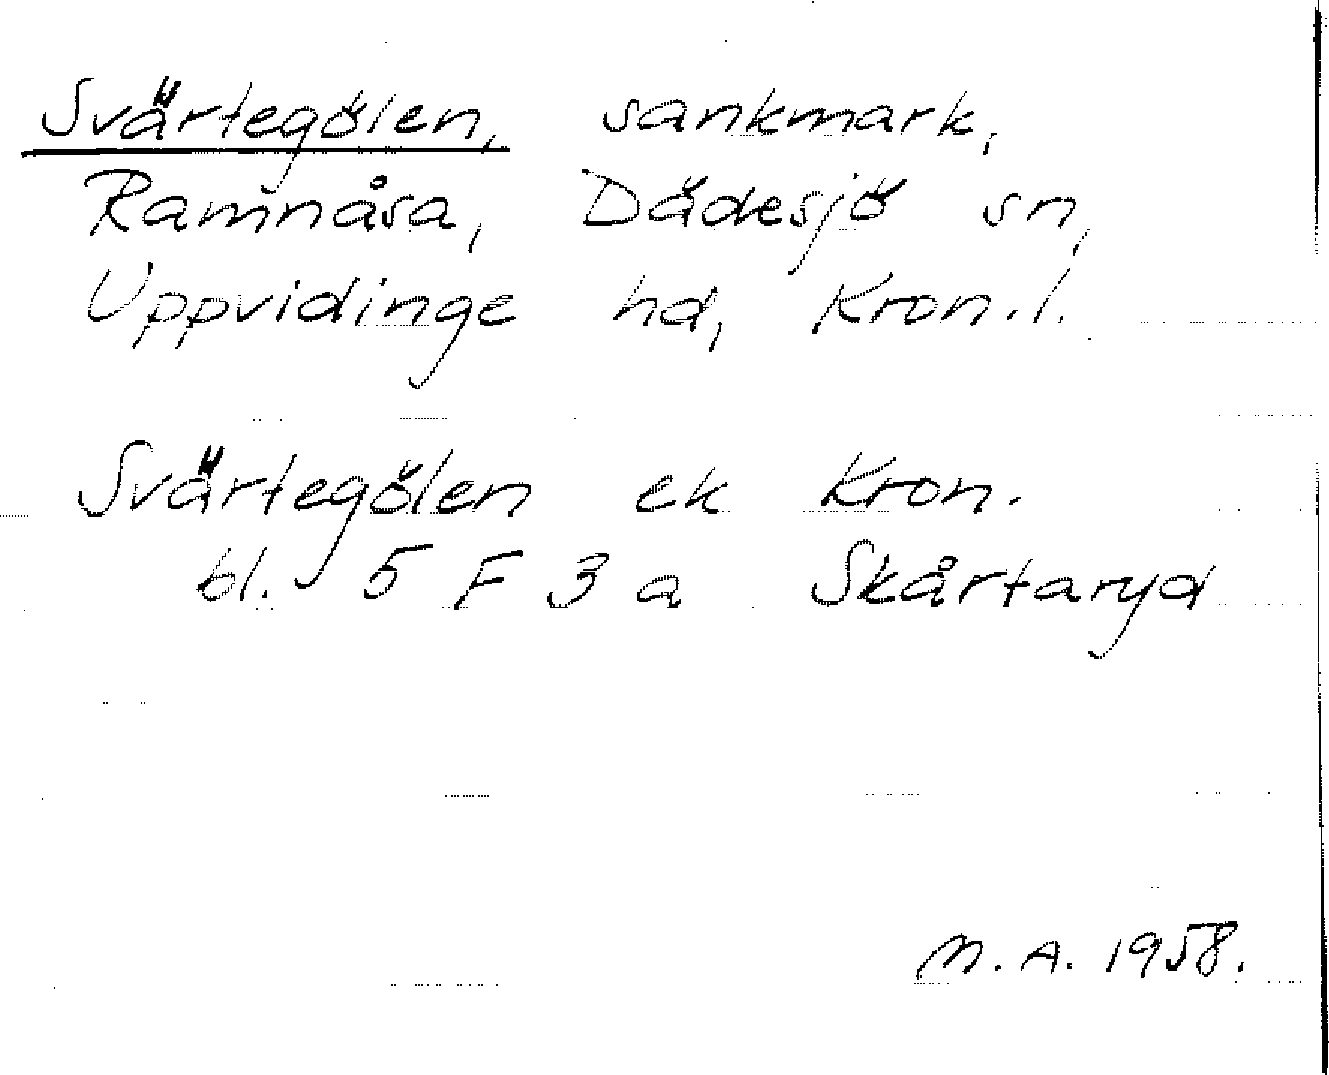 Svärtegölen, sankmark,
Ramnåsa, Dädesjö sn,
Uppvidinge hd, Kron.l.
Svärtegölen ek Kron.
bl. 5 F 3 a Skårtaryd
M.A. 1958.